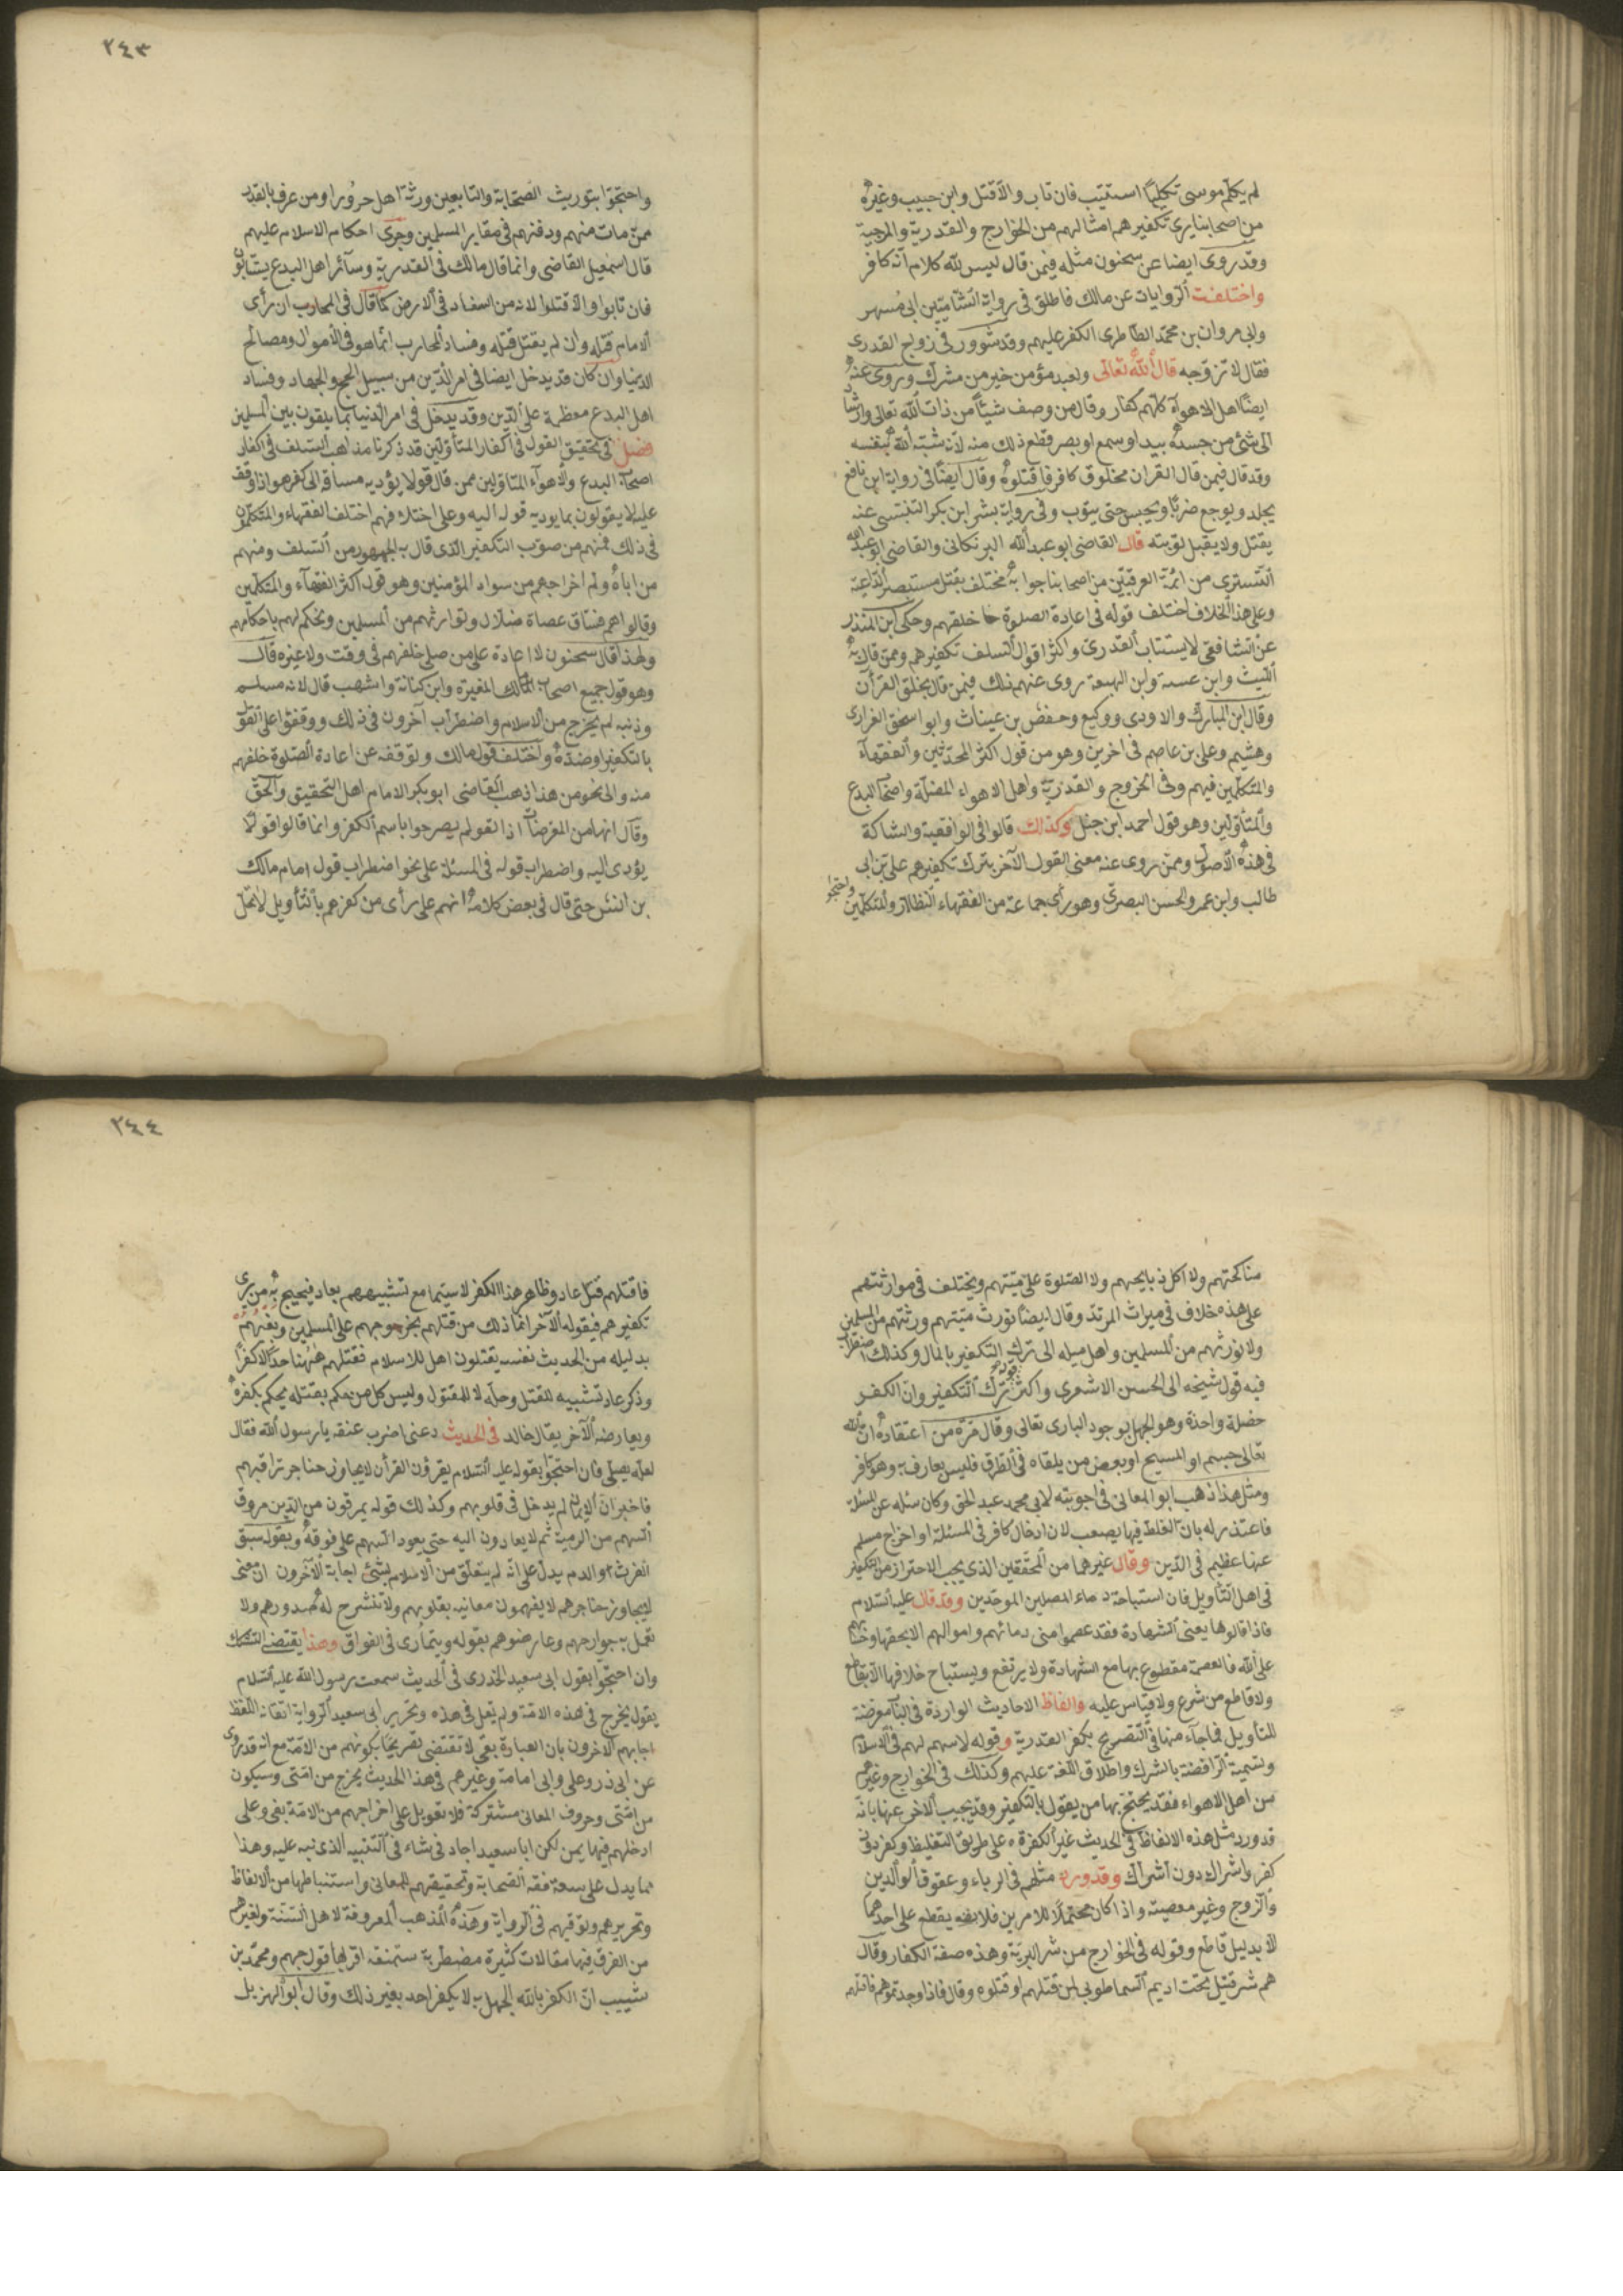 لم يكلم موسى تكليمًا استتيب فان تاب والّا قتل وابن حبيب وغيره
من اصحابنا يرى تكفيرهم امثالهم من الخوارج والقدرية والمرجية
وقد روى ايضا عن سحنون مثله فيمن قال ليس لله كلام انّه كافر
واختلفت الروايات عن مالك فاطلق فى رواية الشاميّين ابى مسهر
وابى مروان بن محمّد الطاطرى الكفر عليهم وقد شوور فى زواج القدرى
فقال لا تزوّجه قال الله تعالى ولعبد مؤمن خير من مشرك وروى عنه
ايضًا اهل الاهوآء كلّهم كفار وقال من وصف شيئًا من ذات الله تعالى واشار
الى شئ من جسده بيد او سمع او بصر قطع ذلك منه لانّه شبّه الله بنفسه
وقد قال فيمن قال القران مخلوق كافر فاقتلوه وقال ايضًا فى رواية ابن نافع
يجلد ويوجع ضربًا ويحبس حتى يتوب وفى رواية بشر ابن بكر التنيسى عنه
يقتل ولا يقبل توبته قال القاضى ابو عبد الله البرنكانى والقاضى ابو عبد الله
التسترى من ائمّة العرقيّين من اصحابنا جوابه مختلف يقتل مستبصر الداعية
وعلى هذا الخلاف اختلف قوله فى اعادة الصلوة خلفهم وحكى ابن المنذر
عن الشافعىّ لا يستتاب القدرىّ واكثر اقوال السلف تكفيرهم وممّن قال به
الليث وابن عيينة وابن الهيعة روى عنهم ذلك فيمن قال بخلق القرآن
وقال ابن المبارك والاودى ووكيع وحفص بن غياث وابو اسحق الفزارى
وهشيم وعلى بن عاصم فى اخرين وهو من قول اكثر المحدّثين والفقهآء
والمتكلّمين فيهم وفى الخروج والقدريّة واهل الاهواء المضلّة واصحاب البدع
والمتأوّلين وهو قول احمد ابن حنبل وكذلك قالوا فى الواقفية والشاكة
فى هذه الاصول وممّن روى عنه معنى القول الآخر بترك تكفيرهم على بن ابى
طالب وابن عمر والحسن البصرىّ وهو رأى جماعة من الفقهاء النظار والمتكلّمين
واحتجوا
٢٤٣
واحتجّوا بتوريث الصّحابة والتابعين ورثة اهل حرورا ومن عرف بالقدر
ممّن مات منهم ودفنهم فى مقابر المسلمين وجرى احكام الاسلام عليهم
قال اسمعيل القاضى وانما قال مالك فى القدريّة وسآئر اهل البدع يستتابون
فان تابوا والّا قتلوا لانه من الفساد فى الارض كما قال فى المحارب ان رأى
الامام قتله وان لم يقتل قتله وفساد المحارب انّما هو فى الأموال ومصالح
الدنيا وان كان قد يدخل ايضا فى امر الدّين من سبيل الحج والجهاد وفساد
اهل البدع معظمة على الدّين وقد يدخل فى امر الدنيا بما يلقون بين المسلمين
فصل فى تحقيق القول فى اكفار المتأوّلين قد ذكرنا مذاهب السلف فى اكفار
اصحاب البدع والأهوآء المتأوّلين ممن قال قولا يؤديه مساقه الى كفر هو اذا وقف
عليه لا يقولون بما يوديه قوله اليه وعلى اختلافهم اختلف الفقهاء والمتكلمون
فى ذلك فمنهم من صوّب التكفير الذى قال به الجمهور من السلف ومنهم
من اباه ولم اخراجهم من سواد المؤمنين وهو قول اكثر الفقهآء والمتكلّمين
وقالوا هم فسّاق عصاة ضلّال ولتوارثهم من المسلمين ونحكم لهم باحكامهم
ولهذا قال سحنون لا اعادة على من صلى خلفهم فى وقت ولا غيره قال
وهو قول جميع اصحاب مالك المغيرة وابن كنانة واشهب قال لانه مسلم
وذنبه لم يخرج من الاسلام واضطرب آخرون فى ذلك ووقفوا على القول
بالتكفير او ضدّه واختلف قول مالك وتوقفه عن اعادة الصّلوة خلفهم
منه والى نحو من هذا ذهب القاضى ابو بكر الامام اهل التحقيق والحقّ
وقال انها من المعوضات اذا القوم لم يصرحوا باسم الكفر وانما قالوا قولا
يؤدى اليه واضطراب قوله فى المسئلة على نحو اضطراب قول امام مالك
بن انس حتى قال فى بعض كلامه انهم على رأى من كفرهم بالتأويل لا تحلّ
مناكحتهم ولا اكل ذبايحهم ولا الصّلوة على ميّتهم ويختلف فى موارثتهم
على هذه خلاف فى ميراث المرتد وقال ايضًا نورث ميّتهم ورثتهم من المسلمين
ولا نورثهم من المسلمين واهل ميله الى ترك التكفير بالمال وكذلك اضطراب
فيه قول شيخه الى الحسن الاشعرى واكثر قوله ترك التكفير وان الكفر
خصلة واحدة وهو الجهل بوجود البارى تعالى وقال مرّة من اعتقاده ان الله
تعالى جسم او المسيح او بعض من يلقاه فى الطرق فليس بعارف به وهو كافر
ومثل هذا ذهب ابو المعانى فى اجوبته لابى محمد عبد الحق وكان سئله عن المسئلة
فاعتذر له بان الغلط فيها يصعب لان ادخال كافر فى المسئلة او اخراج مسلم
عنها عظيم فى الدّين وقال غيرهما من المحقّقين الذى يجب الاحتراز من التكفير
فى اهل التأويل فان استباحة دماء المصلين الموحّدين وقد قال عليه السّلام
فاذا قالوها يعنى الشهادة فقد عصموا منى دمائهم واموالهم الا بحقها وحسابهم
على الله فالعصمة مقطوع بها مع الشهادة ولا يرتفع ويستباح خلافها الّا بقاطع
ولا قاطع من شرع ولا قياس عليه والفاظ الاحاديث الواردة فى الباب معرضة
للتأويل فما جآء منها فى التّصريح بكفر القدرية وقوله لا سهم لهم فى الاسلام
وتسمية الرافضة بالشرك واطلاق اللّغة عليهم وكذلك فى الخوارج وغيرهم
من اهل الاهواء فقد يحتجّ بها من يقول بالتكفير وقد يجيب الاخر عنها بانّه
قد ورد مثل هذه الالفاظ فى الحديث غير الكفرة على طريق التغليظ وكفر دون
كفر واشراك دون اشراك وقد ورد مثلهم فى الرياء وعقوق الوالدين
والزوج وغير معصيته واذا كان محتملًا للامرين فلا يقطع على احدهما
الّا بدليل قاطع وقوله فى الخوارج من شر البريّة وهذه صفة الكفار وقال
هم شر قتيل تحت اديم السما طوبى لمن قتلهم او قتلوه وقال فاذا وجدتموهم فاقتلوهم
٢٤٤
فاقتلهم قتل عاد وظاهر هذا الكفر لا سيّما مع تشبيههم بعاد فيحتجّ به من يرى
تكفيرهم فيقول له الآخر انّما ذلك من قتلهم بخروجهم على المسلمين وبغيهم
بدليله من الحديث نفسه يقتلون اهل الاسلام فقتلهم ههنا حدّ لا كفرًا
وذكر عاد تشبيه للقتل وحلّه لا للمقتول وليس كل من حكم بقتله يحكم بكفره
ويعارضه الآخر بقال خالد فى الحديث دعنى اضرب عنقه يا رسول الله فقال
لعله يصلّى فان احتجّوا بقوله عليه السّلام يقرؤن القرآن لا يجاوز حناجر تراقيهم
فاخبر انّ الايمان لم يدخل فى قلوبهم وكذلك قوله يمرقون من الدّين مروق
السهم من الرمية ثم لا يعادون اليه حتى يعود السهم على فوقه وبقوله سبق
الفرث والدم يدلّ على انّه لم يتعلّق من الاسلام بشئ اجابه الآخرون ان معنى
لا يجاوز حناجرهم لا يفهمون معانيه بقلوبهم ولا تنشرح له صدورهم ولا
تعمل به جوارحهم وعارضوهم بقوله ويتمارى فى الفواق وهذا يقتضى التشكك
وان احتجّوا بقول ابى سعيد الخدرى فى الحديث سمعت رسول الله عليه السّلام
يقول يخرج فى هذه الامّة ولم يقل فى هذه وتحرير ابى سعيد الرواية اتقانه اللّفظ
اجابهم الاخرون بان العبارة بفى لا تقتضى تصريحًا بكونهم من الامّة مع انه قد روى
عن ابى ذر وعلى وابى امامة وغيرهم فى هذا الحديث يخرج من امّتى وسيكون
من امّتى وحروف المعانى مشتركة فلا تعويل على اخراجهم من الامّة بفى وعلى
ادخلهم فيها بمن لكن ابا سعيد اجاد فى شاء فى التنبيه الذى نبه عليه وهذا
مما يدل على سعة فقه الصّحابة وتحقيقهم للمعانى واستنباطها من الالفاظ
وتحريرهم وتوقيهم فى الرواية وهذه المذهب المعروفة لاهل السّنّة ولغيرهم
من الفرق فيها مقالات كثيرة مضطربة ستمنعة اقربها قول جهم ومحمّد بن
شبيب انّ الكفر بالله الجهل به لا يكفر احد بغير ذلك وقال ابو الهزيل